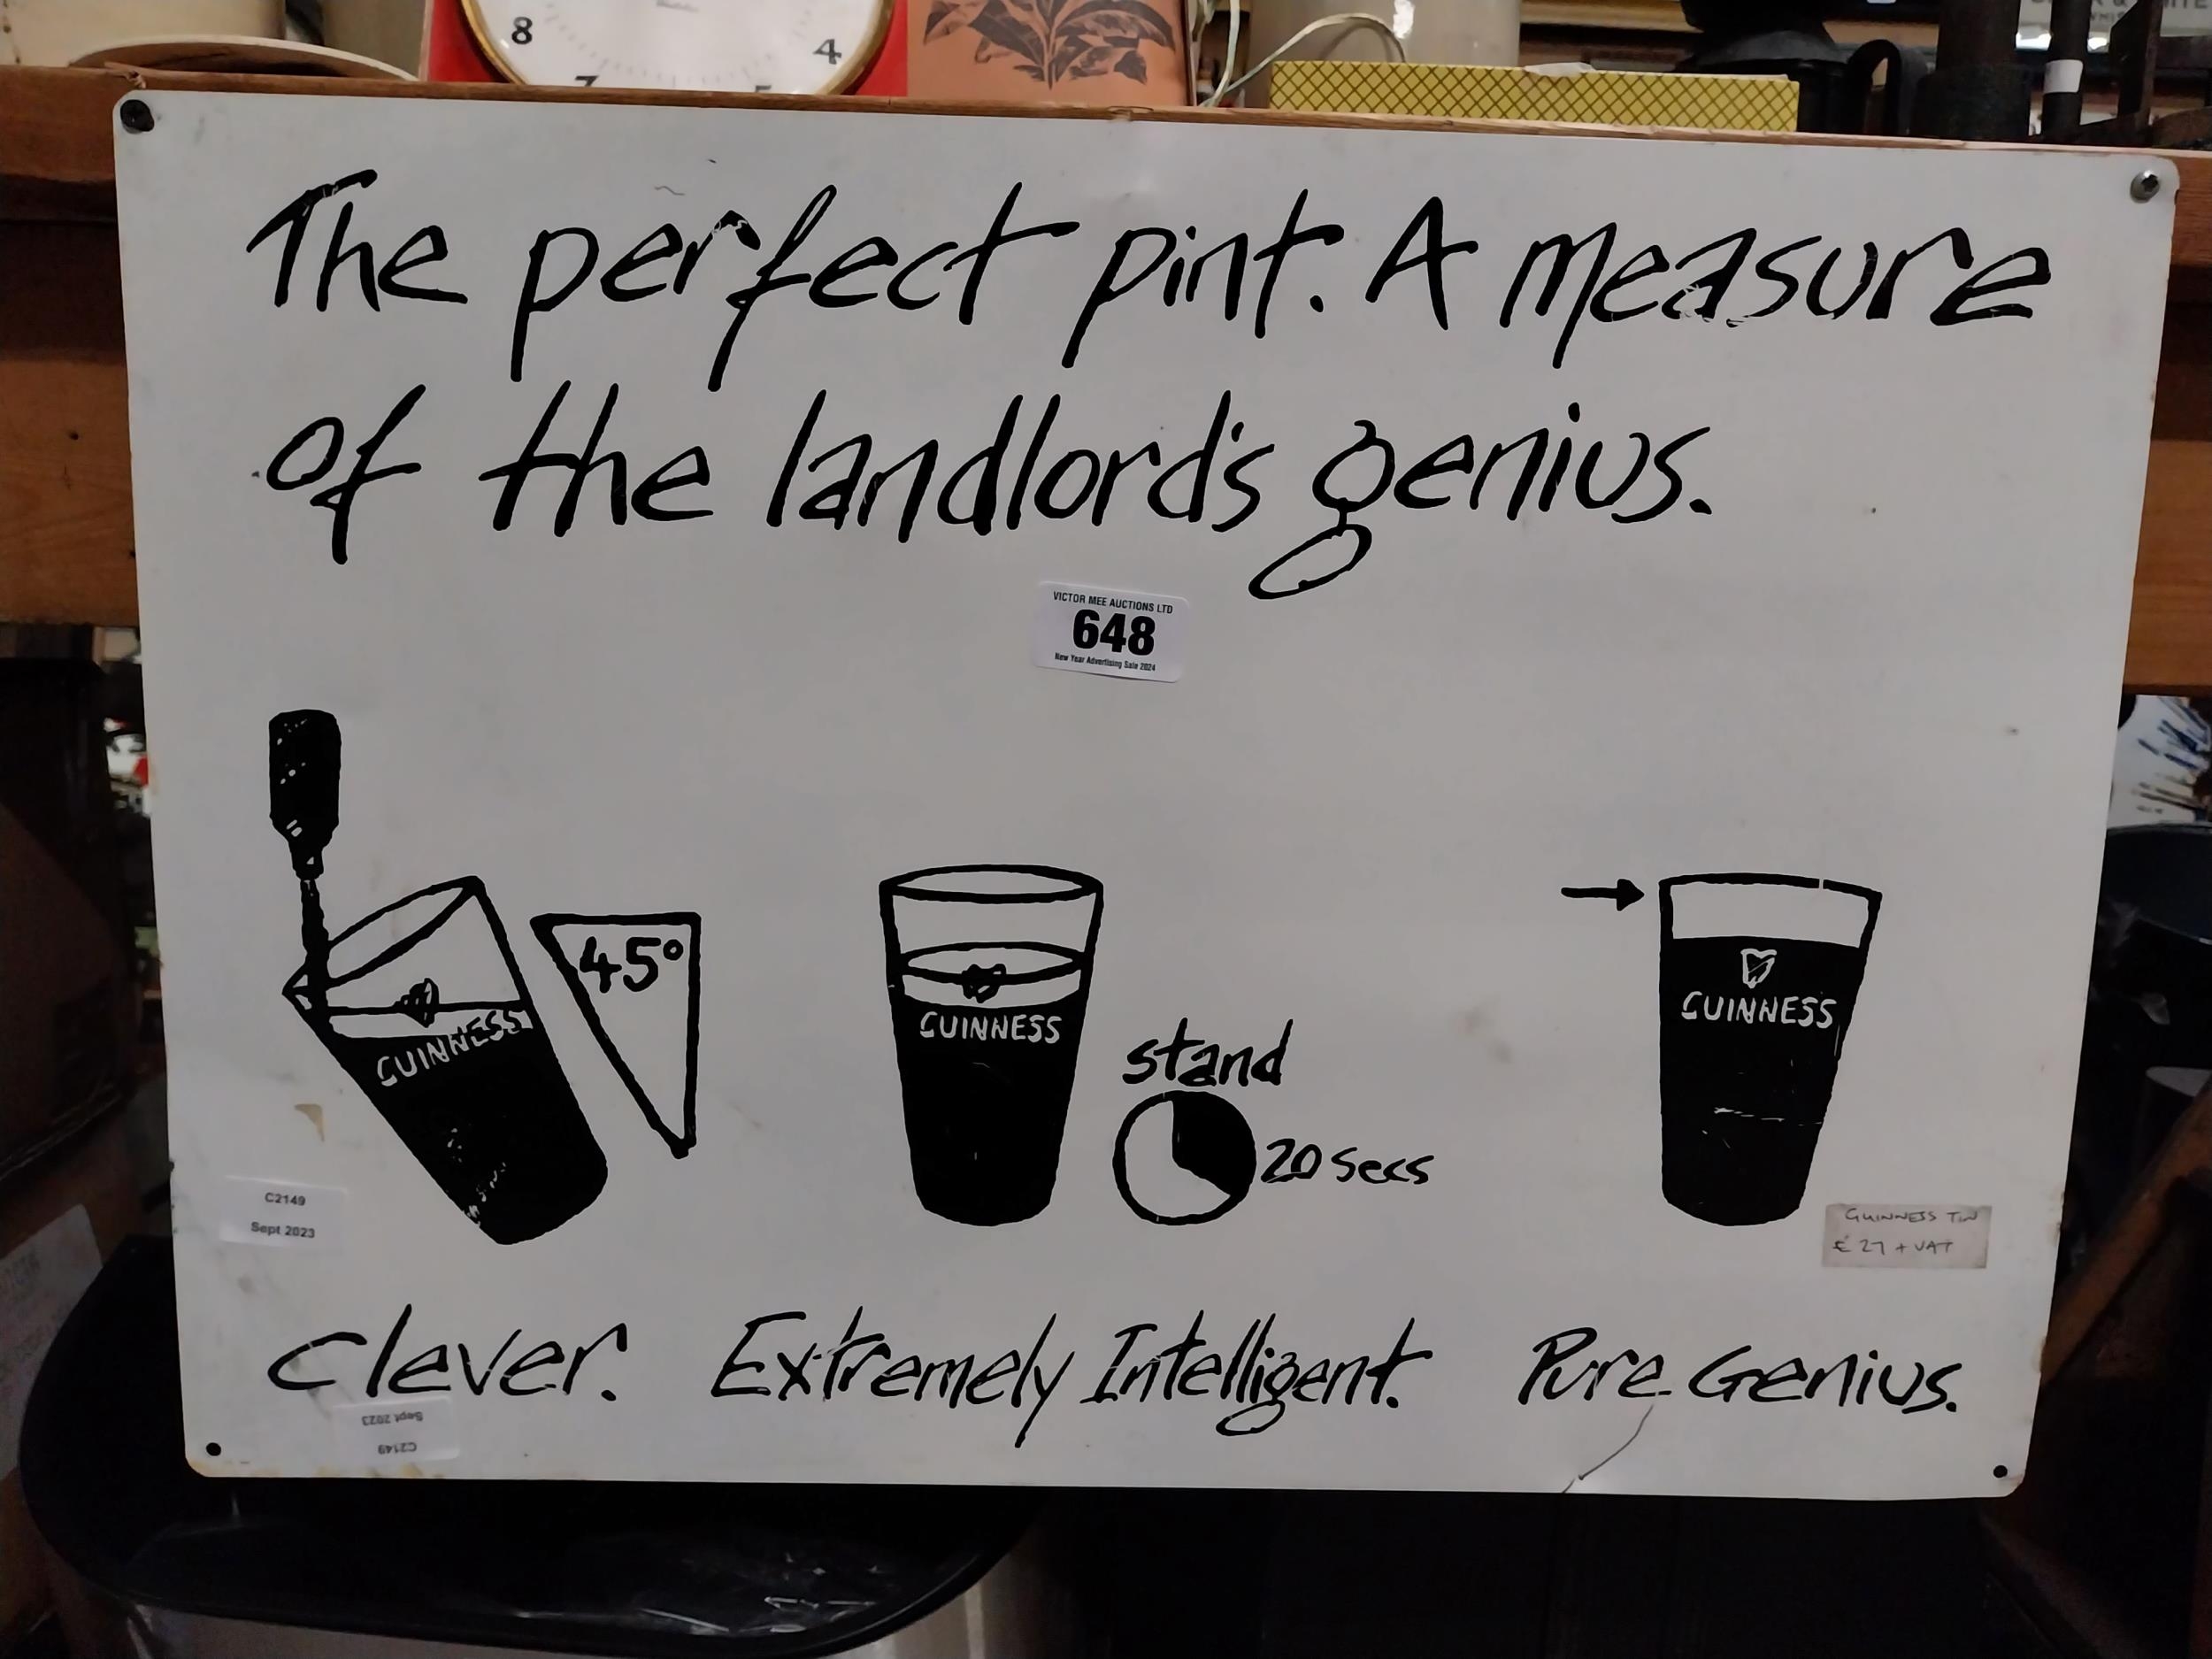 8
7
5
4
The perfect pint. A measure
of the landlord's genius.
VICTOR MEE AUCTIONS LTD
648
New Year Advertising Sale 2024
45°
GUINNESS
GUINNESS
stand
20 secs
GUINNESS
C2149
Sept 2023
GUINNESS TIN
£27 + VAT
Clever. Extremely Intelligent. Pure Genius.
Sept 2023
C2149